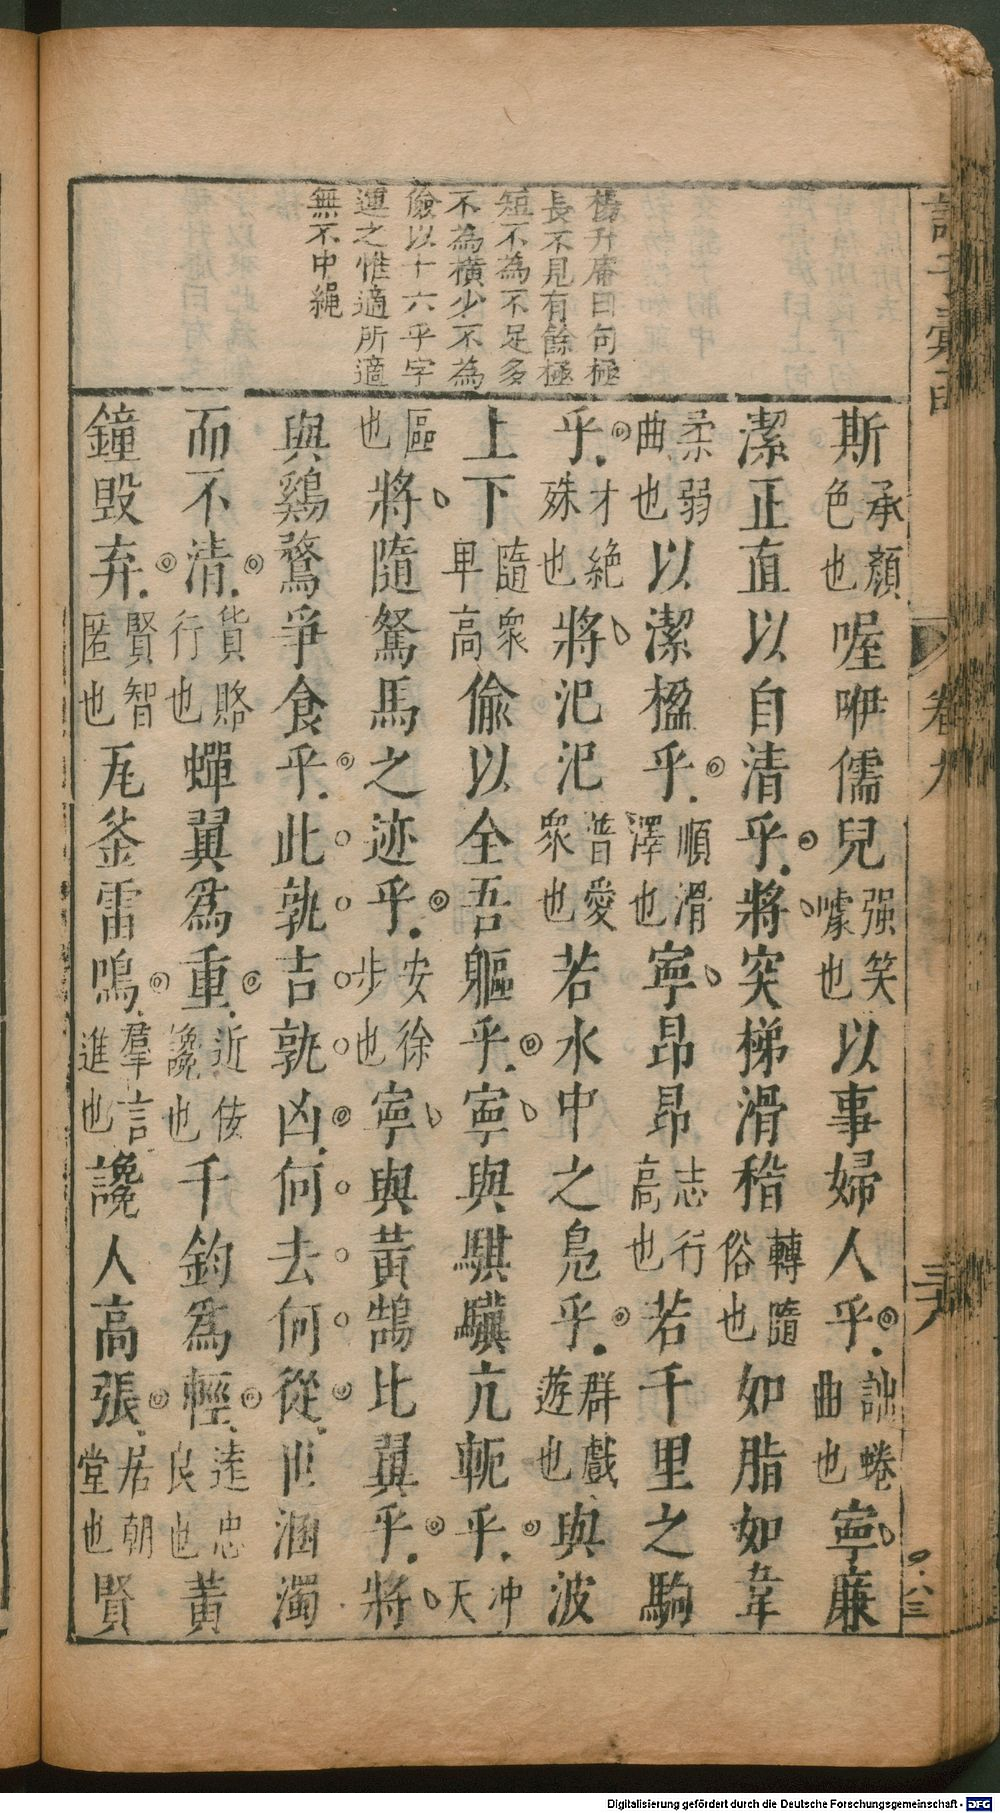 楊升庵曰句極
長不見有餘極
短不為不足多
不為橫少不為
儉以十六乎字
運之惟適所適
無不中繩
斯承顏色也喔咿儒兒强笑噱也以事婦人乎詘蜷曲也寧廉
潔正直以自清乎將突梯滑稽轉隨俗也如脂如韋
柔弱曲也以潔楹乎順滑澤也寧昂昂志行高也若千里之駒
乎才絶殊也將氾氾普愛衆也若水中之鳧乎群戲遊也與波
上下隨衆卑高偷以全吾軀乎寧與騏驥亢軛乎冲天
區也將隨駑馬之迹乎安徐步也寧與黃鵠比翼乎將
與鷄鶩爭食乎此孰吉孰凶何去何從世溷濁
而不清貨賂行也蟬翼爲重近佞讒也千鈞爲輕遠忠良也黃
鐘毁弃賢智匿也瓦釜雷鳴羣言進也讒人高張居朝堂也賢
卷九
九八三
Digitalisierung gefördert durch die Deutsche Forschungsgemeinschaft - DFG